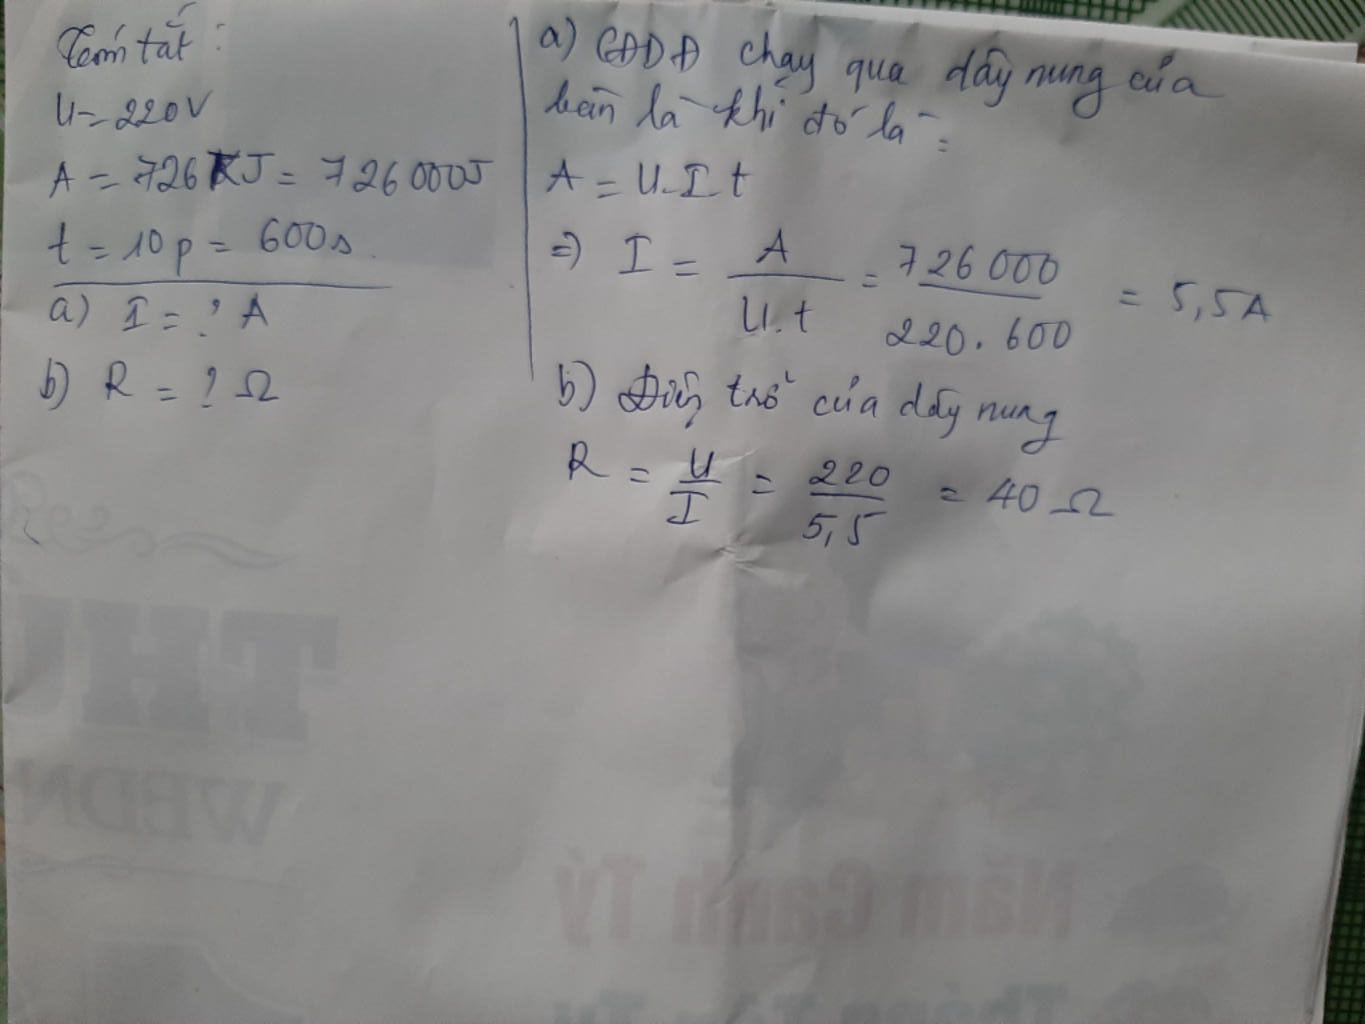 Tóm tắt :
U = 220V
A = 726KJ = 726000J
t = 10p = 600s
a) I = ? A
b) R = ? Ω
a) CĐDĐ chạy qua dây nung của
bàn là khi đó là :
A = U.I t
=> I = A / U.t = 726000 / 220.600 = 5,5A
b) Điện trở của dây nung
R = U / I = 220 / 5,5 = 40 Ω
THU
WEDN
Năm Canh Tý